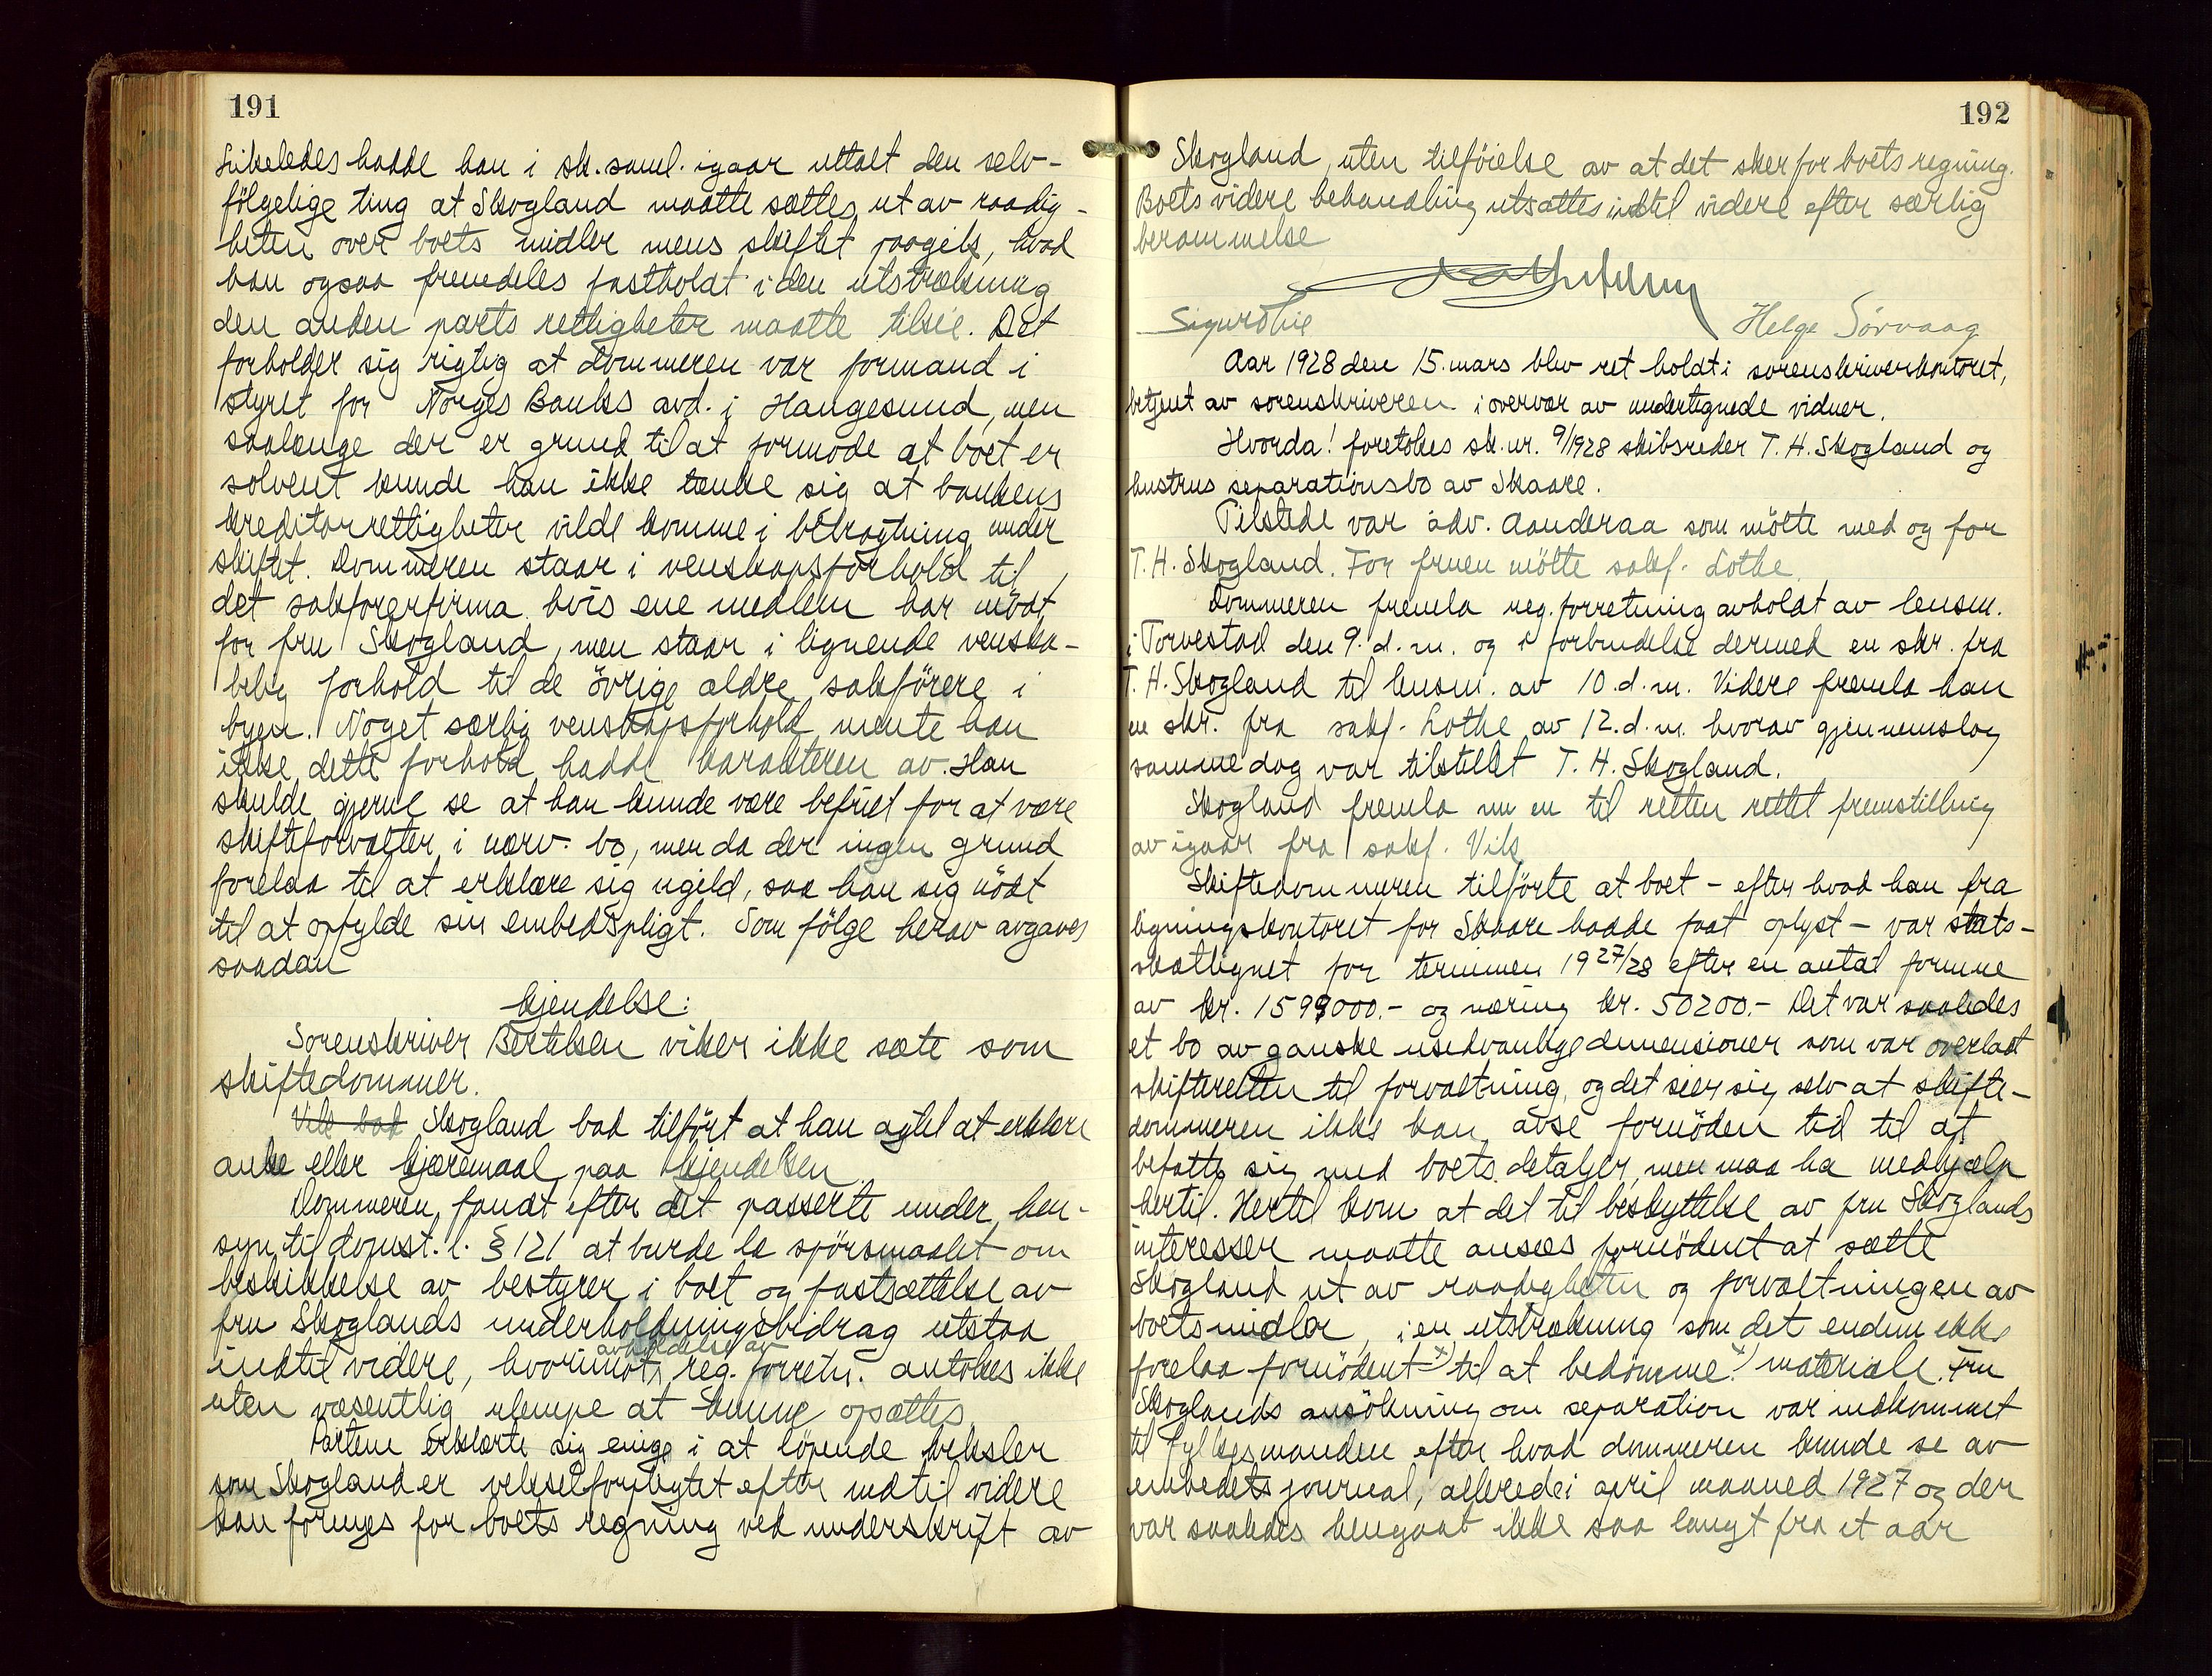 191
Likeledes hadde han i sk. saml. igaar uttalt den selv-
følgelige ting at Skogland maatte sættes ut av raadig-
heten over boets midler mens skiftet paagik, hvad
han ogsaa fremdeles fastholdt i den utstrækning
den anden parts rettigheter maatte tilsie. Det
forholder sig rigtig at dommeren var formand i
styret for Norges Banks avd. i Haugesund, men
saalænge der er grund til at formode at boet er
solvent kunde han ikke tænke sig at bankens
kreditorrettigheter vilde komme i betragtning under
skiftet. Dommeren staar i venskapsforhold til
det sakførerfirma hvis ene medlem har mødt
for fru Skogland, men staar i lignende venska-
belig forhold til de øvrige ældre sakførere i
byen. Noget særlig venskapsforhold mente han
ikke dette forhold hadde karakteren av. Han
skulde gjerne se at han kunde være befriet for at være
skifteforvalter i nærv. bo, men da der ingen grund
forelaa til at erklære sig ugild, saa han sig nødt
til at opfylde sin embedspligt. Som følge herav avgaves
saadan
kjendelse:
Sorenskriver Bertelsen viker ikke sæte som
skiftedommer.
Vik bad Skogland bad tilført at han agtet at erklære
anke eller kjæremaal paa kjendelsen.
Dommeren fandt efter det passerte under hen-
syn til domst. l. § 121 at burde la spørsmaalet om
beskikkelse av bestyrer i boet og fastsættelse av
fru Skoglands underholdningsbidrag utstaa
avholdelse av
indtil videre, hvorimot reg. forretn. antokes ikke
uten væsentlig ulempe at kunne opsættes.
Partene erklærte sig enige i at løpende veksler
som Skogland er vekselforpligtet efter indtil videre
kan fornyes for boets regning ved underskrift av
192
Skogland, uten tilføielse av at det sker for boets regning.
Boets videre behandling utsattes indtil videre efter særlig
berammelse
Helge Sørvaag
Aar 1928 den 15. mars blev ret holdt i sorenskriverkontoret,
betjent av sorenskriveren i overvær av undertegnede vidner.
Hvorda! foretokes sk. nr. 9/1928 skibsreder T. H. Skogland og
hustrus separationsbo av Skaare.
Tilstede var adv. Aanderaa som møtte med og for
T. H. Skogland. For fruen møtte sakf. Lothe.
Dommeren fremla reg. forretning avholdt av lensm.
i Torvestad den 9. d. m. og i forbindelse dermed en skr. fra
T. H. Skogland til lensm. av 10. d. m. Videre fremla han
en skr. fra sakf. Lothe av 12. d. m. hvorav gjennemslag
samme dag var tilstillet T. H. Skogland.
Skogland fremla nu en til retten rettet fremstilling
av igaar fra sakf. Vik
Skiftedommeren tilførte at boet - efter hvad han fra
ligningskontoret for Skaare hadde faat oplyst - var stats-
skatlignet for terminen 1927/28 efter en antat formue
av kr. 1599000.- og næring kr. 50200.- Det var saaledes
et bo av ganske usedvanlige dimensioner som var overlatt
skifteretten til forvaltning, og det sier sig selv at skifte-
dommeren ikke kan avse fornøden tid til at
befatte sig med boets detaljer, men maa ha medhjælp
hertil. Hertil kom at det til beskyttelse av fru Skoglands
interesser maatte ansees fornødent at sætte
Skogland ut av raadigheten og forvaltningen av
boets midler i en utstrækning som det endnu ikke
forelaa fornødent x) til at bedømme x) materiale. Fru
Skoglands ansøkning om separation var indkommet
til fylkesmanden efter hvad dommeren kunde se av
embedets journal, allerede i april maaned 1927 og der
var saaledes hengaat ikke saa langt fra et aar